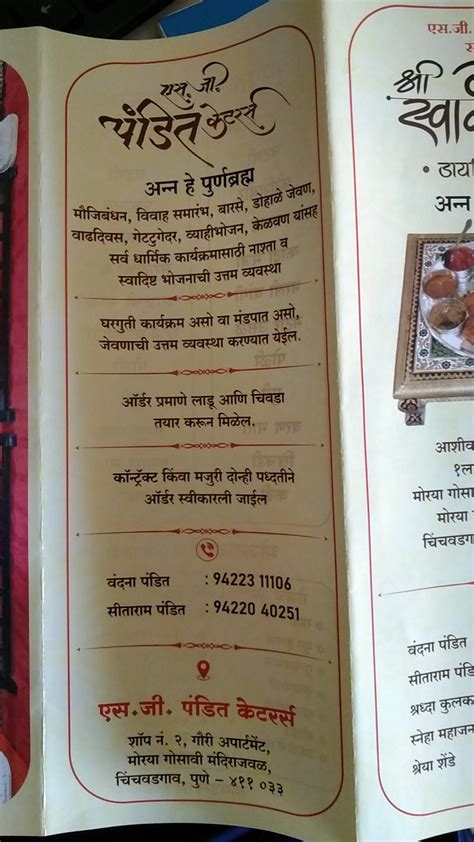 एस. जी.
पंडित केटरर्स
अन्न हे पुर्णब्रह्म
मौजिबंधन, विवाह समारंभ, बारसे, डोहाळे जेवण,
वाढदिवस, गेटटुगेदर, व्याहीभोजन, केळवण यांसह
सर्व धार्मिक कार्यक्रमासाठी नाश्ता व
स्वादिष्ट भोजनाची उत्तम व्यवस्था
घरगुती कार्यक्रम असो वा मंडपात असो,
जेवणाची उत्तम व्यवस्था करण्यात येईल.
ऑर्डर प्रमाणे लाडू आणि चिवडा
तयार करून मिळेल.
कॉन्ट्रॅक्ट किंवा मजुरी दोन्ही पध्दतीने
ऑर्डर स्वीकारली जाईल
वंदना पंडित : 94223 11106
सीताराम पंडित : 94220 40251
एस.जी. पंडित केटरर्स
शॉप नं. २, गौरी अपार्टमेंट,
मोरया गोसावी मंदिराजवळ,
चिंचवडगाव, पुणे - ४११ ०३३
एस.जी.
श्री
अन्न
मोरया गोसा
मोरया
चिंचवडगा
वंदना पंडित
सीताराम पंडि
श्रध्दा कुलक
स्नेहा महाजन
श्रेया शेंडे